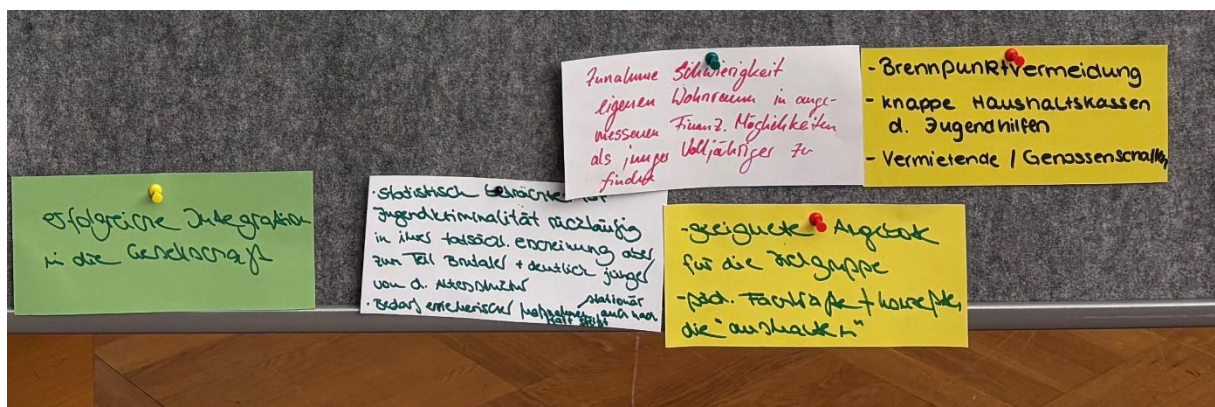 erfolgreiche Integration
in die Gesellschaft
· statistisch betrachtet ist
Jugendkriminalität rückläufig
in ihrer tatsächl. erscheinung aber
zum Teil Brutaler + deutlich jünger
von d. Altersstruktur
· Bedarf erzieherischer Maßnahmen stationär auch nach
Haft steigt
Zunahme Schwierigkeit
eigenen Wohnraum in ange-
messenen Finanz. Möglichkeiten
als junger Volljähriger zu
finden
- Brennpunktvermeidung
- knappe Haushaltskassen
d. Jugendhilfen
- Vermietende / Genossenschaften
- geeignete Angebote
für die Zielgruppe
- päd. Fachkräfte + Konzepte,
die "aushalten"